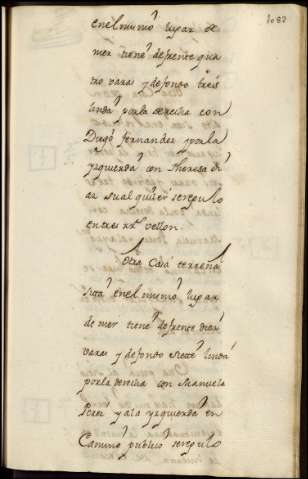 1087
en el mismo lugar de
mer tiene de frente qua
tro varas y de fondo tres
linda por la derecha con
Diego fernandez y por la
yzquierda con Theresa di
az su alquiler se regulo
en tres rr.^s vellon.
Otra Casa terrena
sita en el mismo lugar
de mer tiene de frente diez
varas y de fondo siete linda
por la derecha con Manuela
Perez y a la yzquierda en
Camino publico se regulo